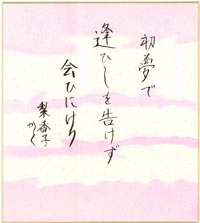 初夢で
逢ひしを告げず
会ひにけり
梨香子
かく